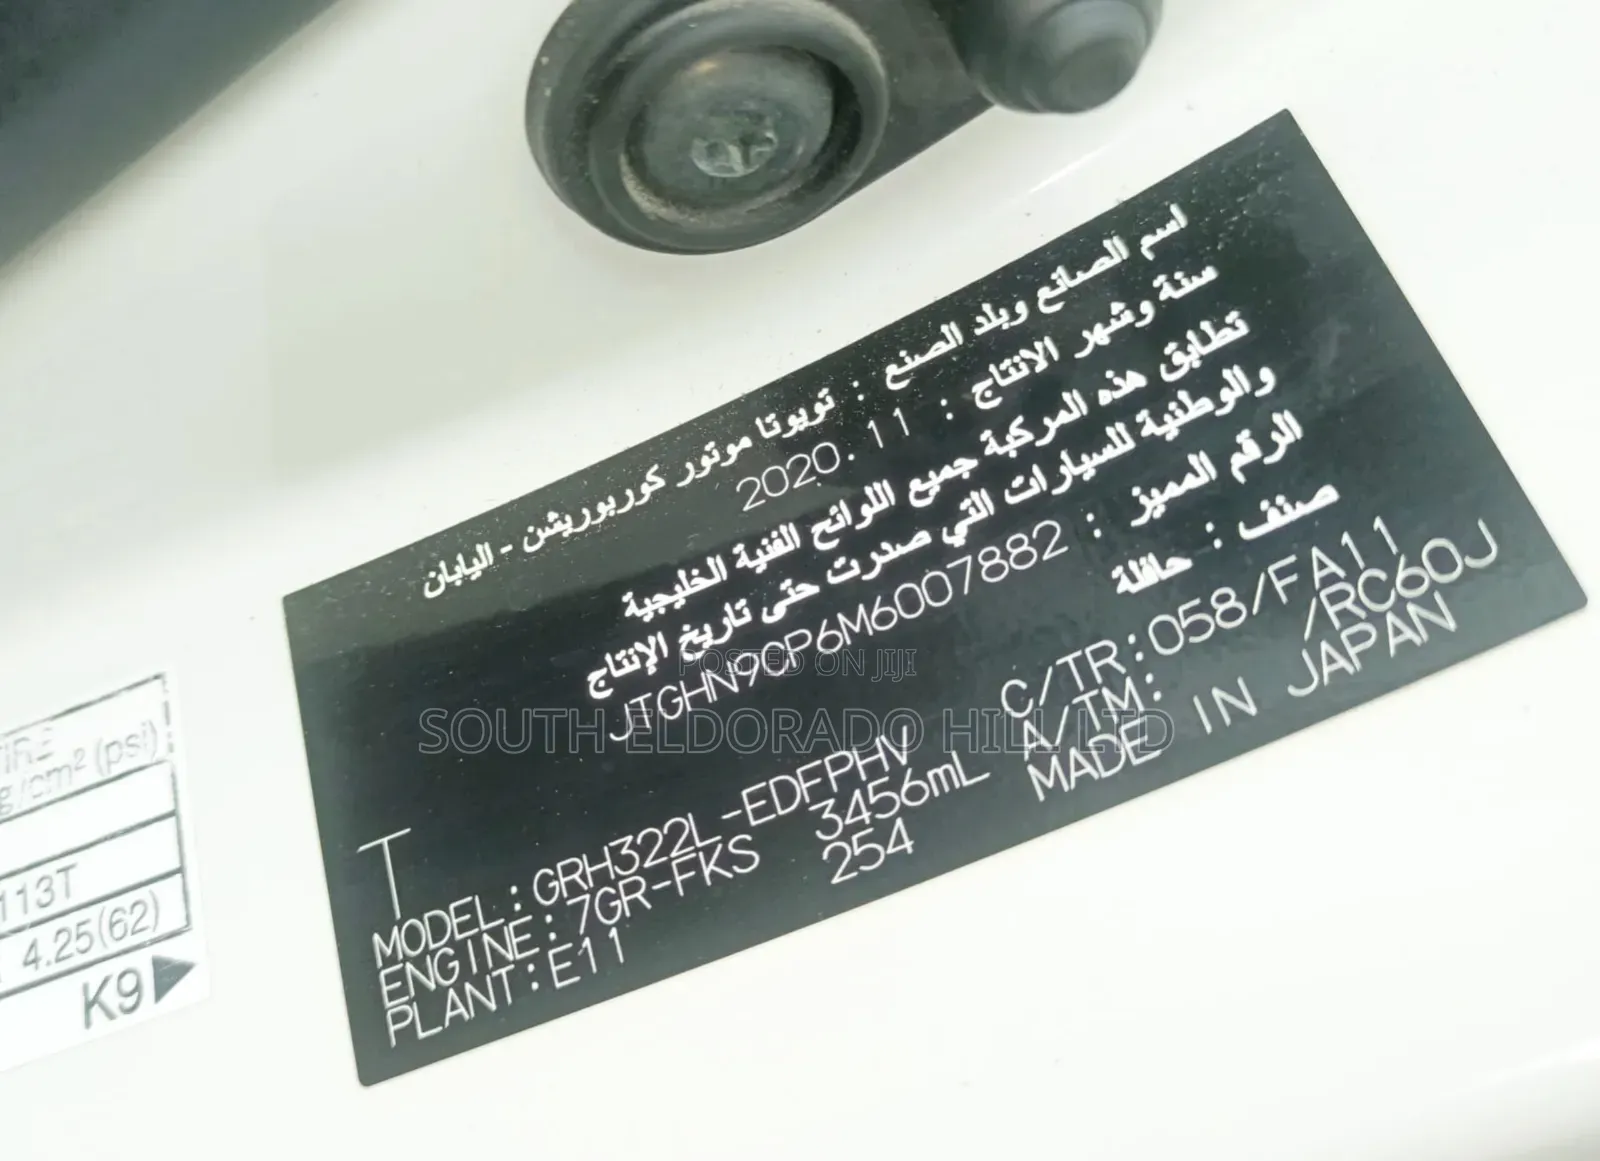 اسم الصانع وبلد الصنع : تويوتا موتور كوربوريشن - اليابان
سنة وشهر الانتاج : 2020.11
تطابق هذه المركبة جميع اللوائح الفنية الخليجية
والوطنية للسيارات التي صدرت حتى تاريخ الإنتاج
الرقم المميز : JTGHN9CP6M6007882
صنف : حافلة
T
MODEL:GRH322L-EDFPHV C/TR:058/FA11
ENGINE:7GR-FKS 3456mL A/TM: /RC60J
PLANT:E11 254 MADE IN JAPAN
/cm² (psi)
113T
4.25(62)
K9▶
POSTED ON JIJI
SOUTH ELDORADO HILL LTD